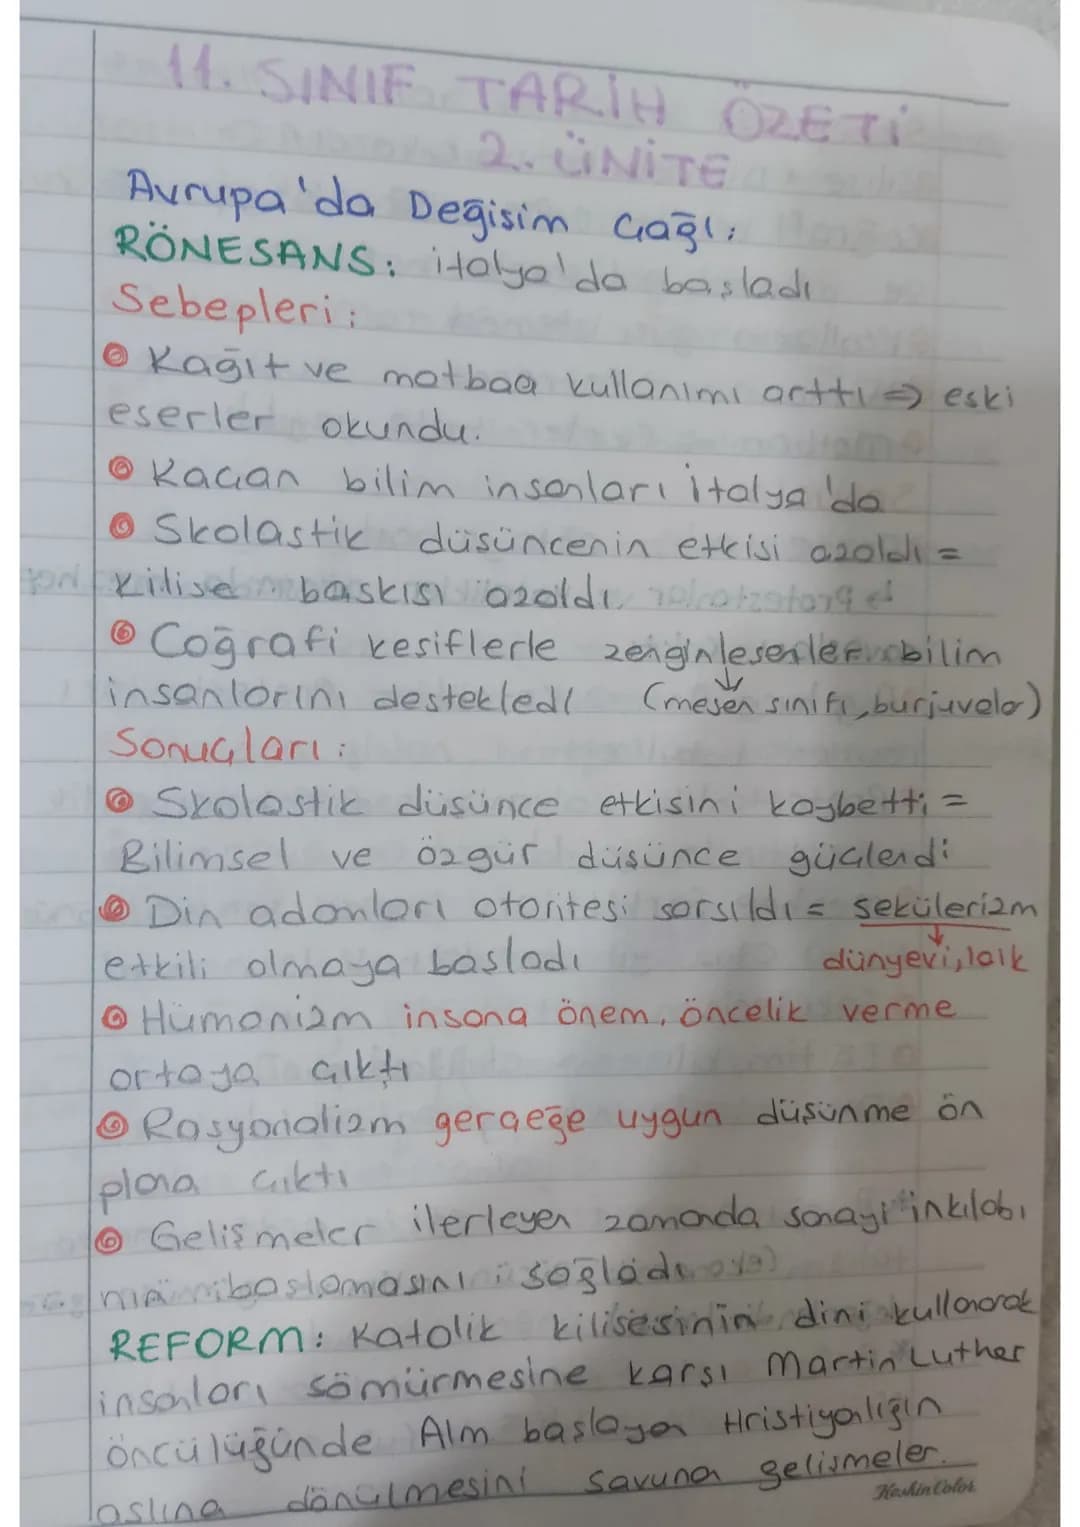 11. SINIF TARİH ÖZETİ
2. ÜNİTE
Avrupa'da Değişim Çağı:
RÖNESANS: italya'da başladı
Sebepleri:
Kağıt ve matbaa kullanımı arttı ⇒ eski
eserler okundu.
Kaçan bilim insanları İtalya'da
Skolastik düşüncenin etkisi azaldı =
kilise baskısı azaldı
Coğrafi keşiflerle zenginleşenler bilim
insanlarını destekledi (mesen sınıfı, burjuvalar)
Sonuçları:
Skolastik düşünce etkisini kaybetti =
Bilimsel ve özgür düşünce güçlendi
Din adamları otoritesi sarsıldı = sekülerizm
etkili olmaya başladı dünyevi, laik
Hümanizm insana önem, öncelik verme
ortaya çıktı
Rasyonalizm gerçeğe uygun düşünme ön
plana çıktı
Gelişmeler ilerleyen zamanda sanayi inkılabı
nın başlamasını sağladı
REFORM: Katolik kilisesinin dini kullanarak
insanları sömürmesine karşı Martin Luther
öncülüğünde Alm başlayan Hristiyanlığın
aslına dönülmesini savunan gelişmeler.
Keskin Color